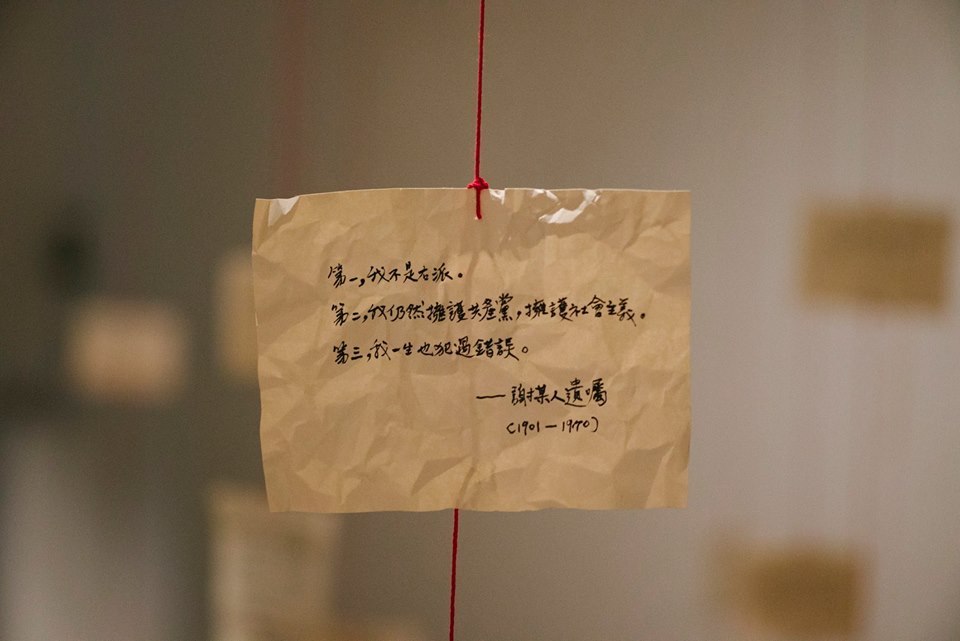 第一，我不是右派。
第二，我仍然擁護共產黨，擁護社會主義。
第三，我一生也犯過錯誤。
— 謝某人遺囑
(1901－1970)